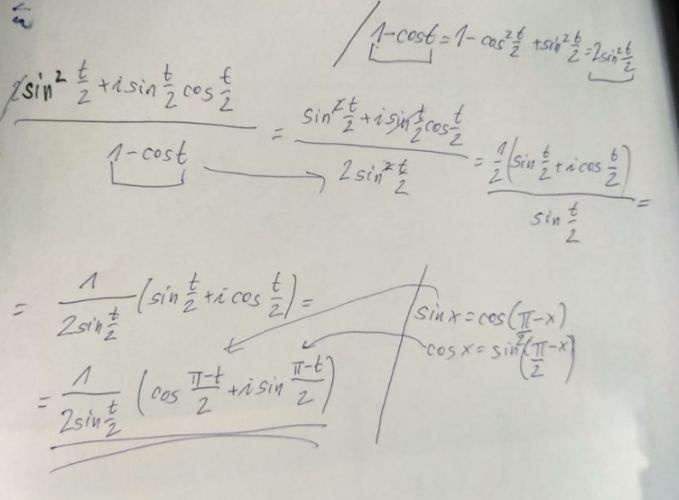 1-cost = 1 - cos² t/2 + sin² t/2 = 2sin² t/2
sin² t/2 + i sin t/2 cos t/2 / 1-cost = sin² t/2 + i sin t/2 cos t/2 / 2 sin² t/2 = 1/2 (sin t/2 + i cos t/2) / sin t/2 =
= 1 / 2sin t/2 (sin t/2 + i cos t/2) =
sin x = cos(π/2 - x)
cos x = sin(π/2 - x)
= 1 / 2sin t/2 (cos π-t/2 + i sin π-t/2)